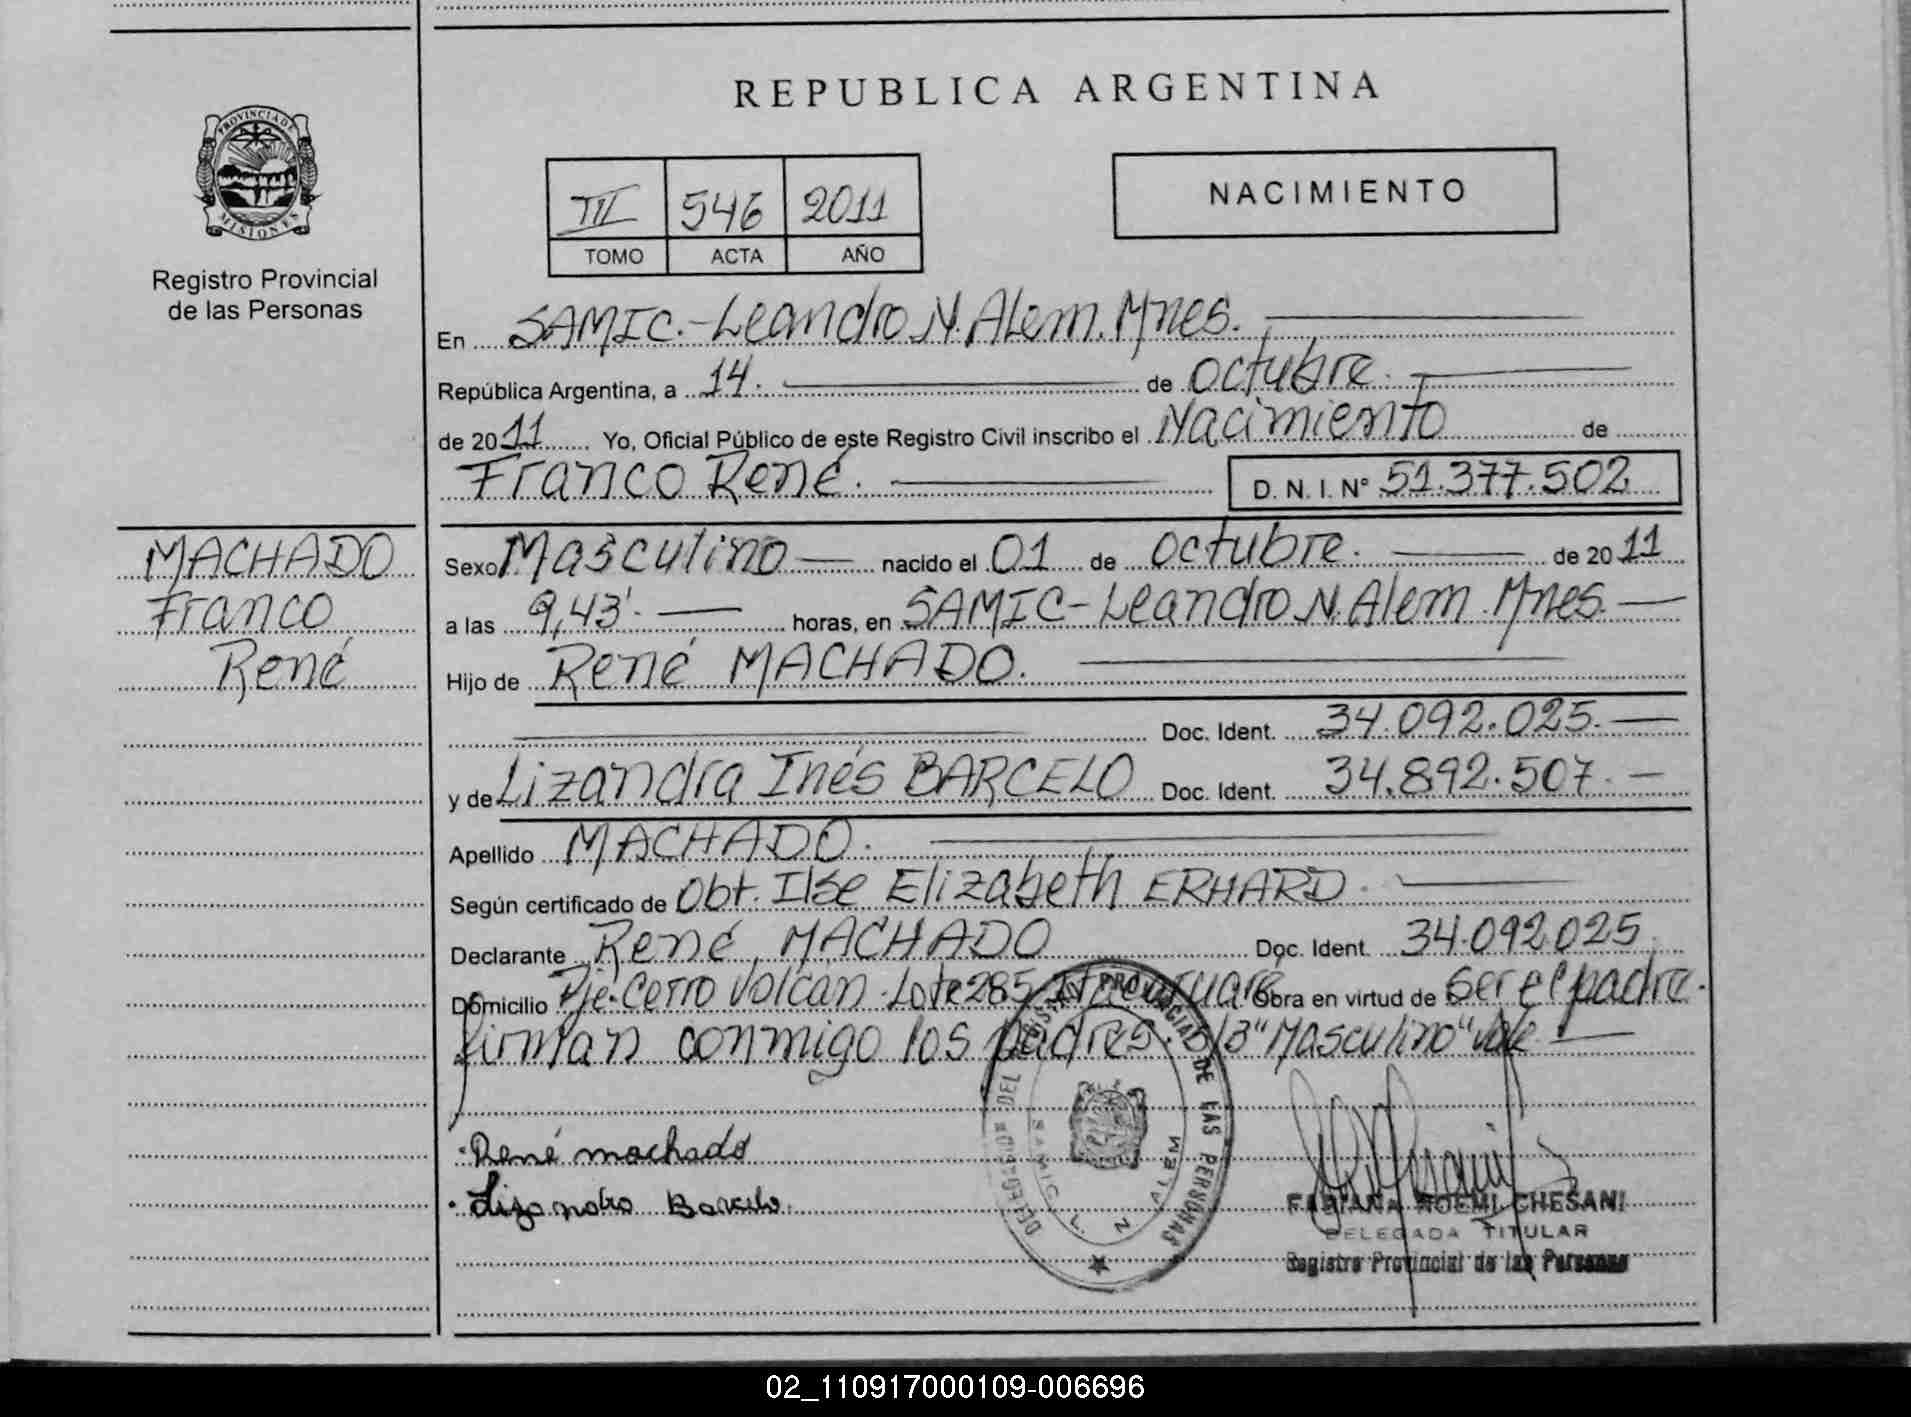 REPUBLICA ARGENTINA
PROVINCIA DE MISIONES
Registro Provincial
de las Personas
III 546 2011
TOMO ACTA AÑO
NACIMIENTO
En SAMIC.-Leandro N. Alem. Mnes.
República Argentina, a 14. de octubre.
de 2011 Yo, Oficial Público de este Registro Civil inscribo el Nacimiento de
Franco René. D. N. I. Nº 51.377.502
MACHADO
Franco
René
Sexo Masculino nacido el 01 de octubre. de 2011
a las 9,43'. horas, en SAMIC-Leandro N. Alem. Mnes.
Hijo de René MACHADO.
Doc. Ident. 34.092.025.
y de Lizandra Inés BARCELO Doc. Ident. 34.892.507.
Apellido MACHADO.
Según certificado de Obt. Ilse Elizabeth ERHARD.
Declarante René MACHADO Doc. Ident. 34.092.025
Domicilio Pje. Cerro Volcan. Lote 285 Obra en virtud de ser el padre.
firman conmigo los padres. S/3 "Masculino" vale
René machado
Lizandra Barcelo.
DELEGACION DEL REGISTRO PROVINCIAL DE LAS PERSONAS
SAMIC L. N. ALEM
FABIANA NOEMI CHESANI
DELEGADA TITULAR
Registro Provincial de las Personas
02_110917000109-006696